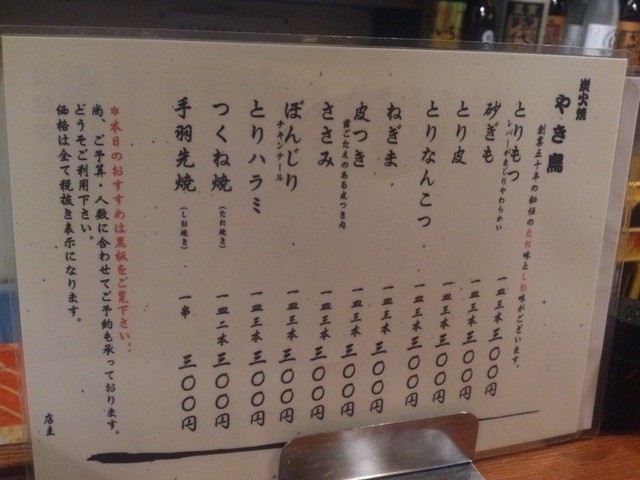 炭火焼
やき鳥
創業五十年の秘伝のたれ味としお味がございます。
とりもつ 一皿三本 三〇〇円
レバーがまじりやわらかい
砂ぎも 一皿三本 三〇〇円
とり皮 一皿三本 三〇〇円
とりなんこつ 一皿三本 三〇〇円
ねぎま 一皿三本 三〇〇円
皮つき 一皿三本 三〇〇円
歯ごたえのある皮つき肉
ささみ 一皿三本 三〇〇円
ぼんじり 一皿三本 三〇〇円
チキンテール
とりハラミ 一皿三本 三〇〇円
つくね焼(たれ焼き) 一皿二本 三〇〇円
手羽先焼(しお焼き) 一串 三〇〇円
*本日のおすすめは黒板をご覧下さい。
尚、ご予算・人数に合わせてご予約も承っております。
どうぞご利用下さい。
価格は全て税抜き表示になります。
店主